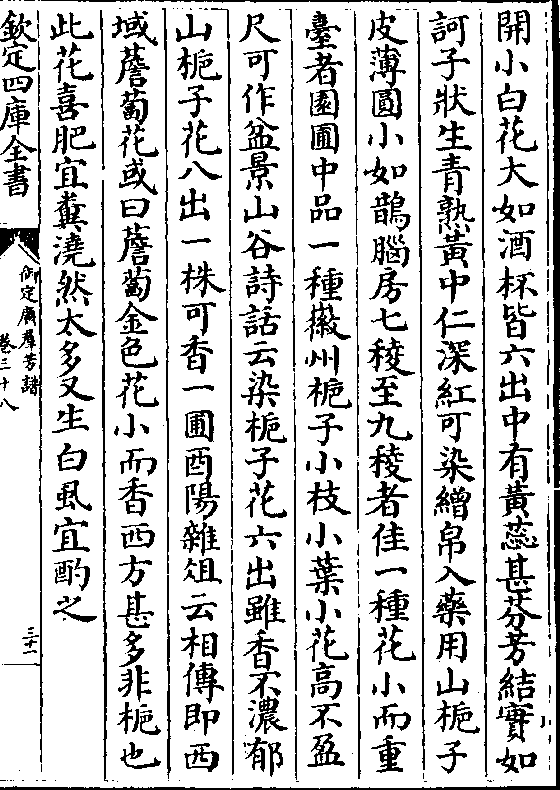 開小白花大如酒杯皆六出中有黃蕊甚芬芳結實如
訶子狀生青熟黃中仁深紅可染繒帛入藥用山梔子
皮薄圓小如鵲腦房七稜至九稜者佳一種花小而重
臺者園圃中品一種徽州梔子小枝小葉小花高不盈
尺可作盆景山谷詩話云染梔子花六出雖香不濃郁
山梔子花八出一株可香一圃酉陽雜俎云相傳即西
域薝蔔花或曰薝蔔金色花小而香西方甚多非梔也
此花喜肥宜糞澆然太多又生白虱宜酌之
欽定四庫全書
御定廣羣芳譜
卷三十八
三十一